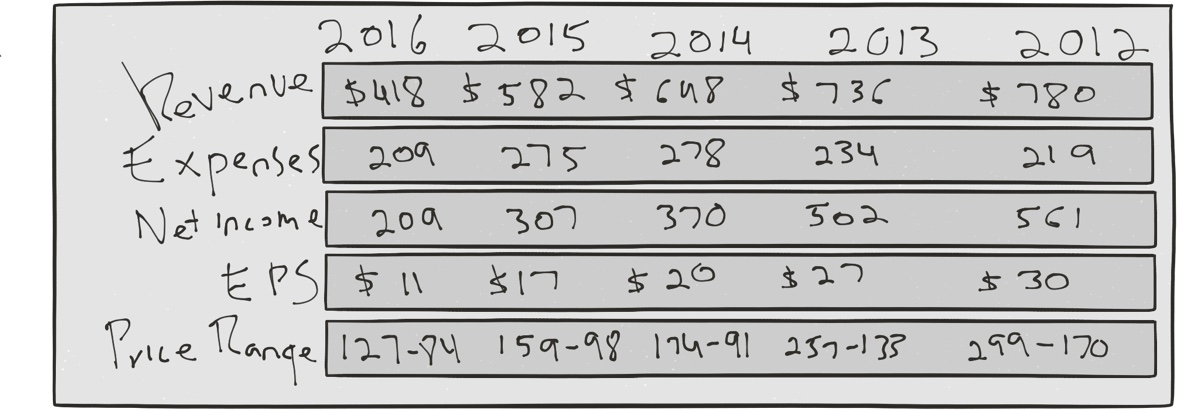 2016 2015 2014 2013 2012
Revenue $418 $582 $648 $736 $780
Expenses 209 275 278 234 219
Net income 209 307 370 502 561
EPS $11 $17 $20 $27 $30
Price Range 127-84 159-98 174-91 257-133 299-170